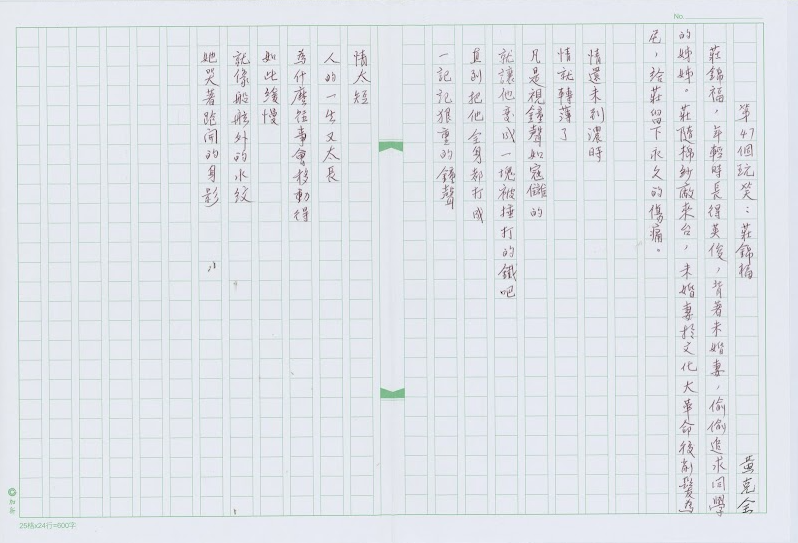 No.
第47個玩笑：莊錦福 黃克全
莊錦福，年輕時長得英俊，背著未婚妻，偷偷追求同學
的姊姊。莊隨棉紗廠來台，未婚妻於文化大革命後削髮為
尼，給莊留下永久的傷痛。
情還未到濃時
情就轉薄了
凡是視鐘聲如寇讎的
就讓他變成一塊被捶打的鐵吧
直到把他全身都打成
一記記狠重的鐘聲
情太短
人的一生又太長
為什麼往事會移動得
如此緩慢
就像船舷外的水紋
她哭著跑開的身影
25格x24行=600字